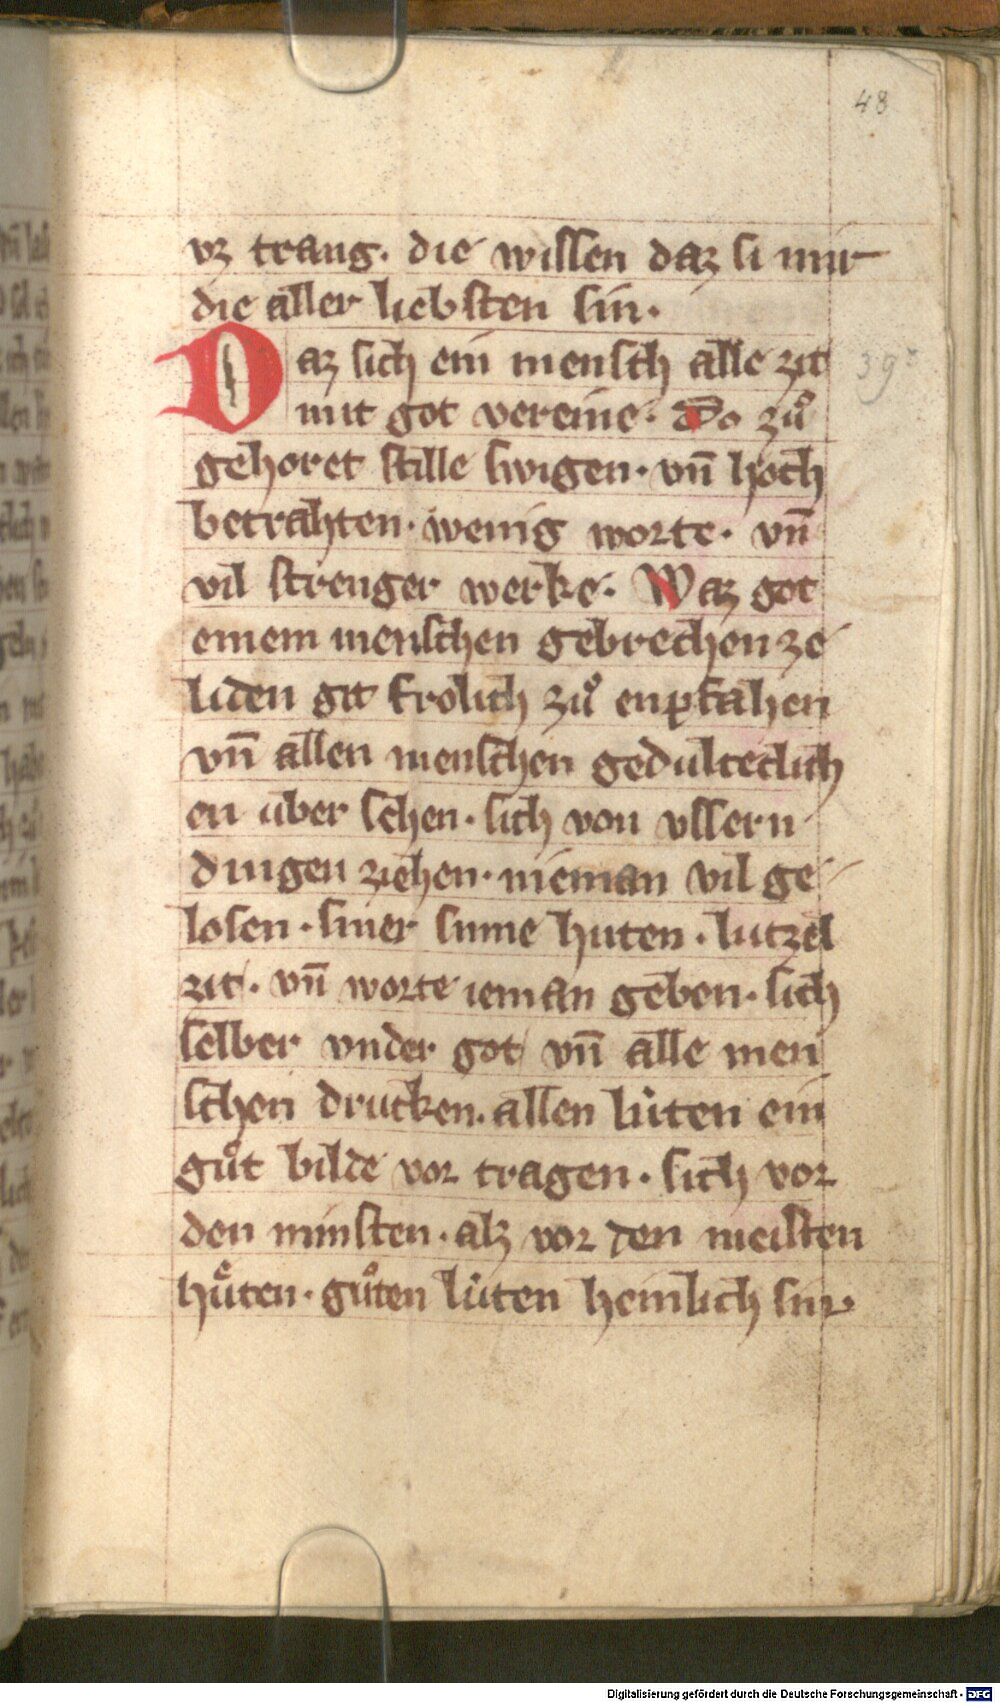 48
vz trang. die wissen daz si mir
die aller liebsten sin.
Daz sich ein mensch alle zit
mit got vereine. Do zuͦ
gehoret stille swigen. vn̄ hoch
betrahten. wenig worte. vn̄
vil strenger werke. Waz got
einem menschen gebrechen ze
liden git frolich zuͦ enpfahen
vn̄ allen menschen gedulteclich
en uber sehen. sich von ussern
dingen ziehen. nieman vil ge
losen. siner sinne huten. lutzel
zit. vn̄ worte ieman geben. sich
selber vnder got vn̄ alle men
schen drucken. allen luͤten ein
guͦt bilde vor tragen. sich vor
den minsten. alz vor den meisten
huͤten. guͦten luͤten heinlich sin
Digitalisierung gefördert durch die Deutsche Forschungsgemeinschaft - DFG